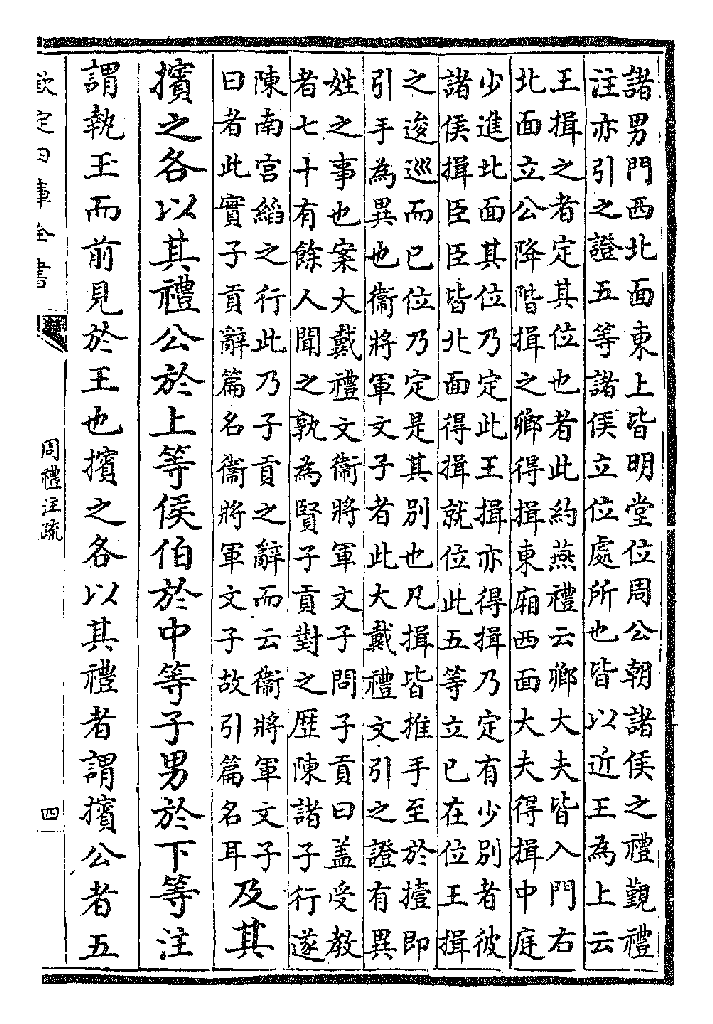 諸男門西北面東上皆明堂位周公朝諸侯之禮覲禮
注亦引之證五等諸侯立位處所也皆以近王為上云
王揖之者定其位也者此約燕禮云卿大夫皆入門右
北面立公降階揖之卿得揖東廂西面大夫得揖中庭
少進北面其位乃定此王揖亦得揖乃定有少別者彼
諸侯揖臣臣皆北面得揖就位此五等立已在位王揖
之逡巡而已位乃定是其別也凡揖皆推手至於撎即
引手為異也衞將軍文子者此大戴禮文引之證有異
姓之事也案大戴禮文衞將軍文子問子貢曰盖受教
者七十有餘人聞之孰為賢子貢對之歷陳諸子行遂
陳南宮縚之行此乃子貢之辭而云衞將軍文子
曰者此實子貢辭篇名衞將軍文子故引篇名耳
及其
擯之各以其禮公於上等侯伯於中等子男於下等注
謂執玉而前見於王也擯之各以其禮者謂擯公者五
欽定四庫全書
周禮注疏
四